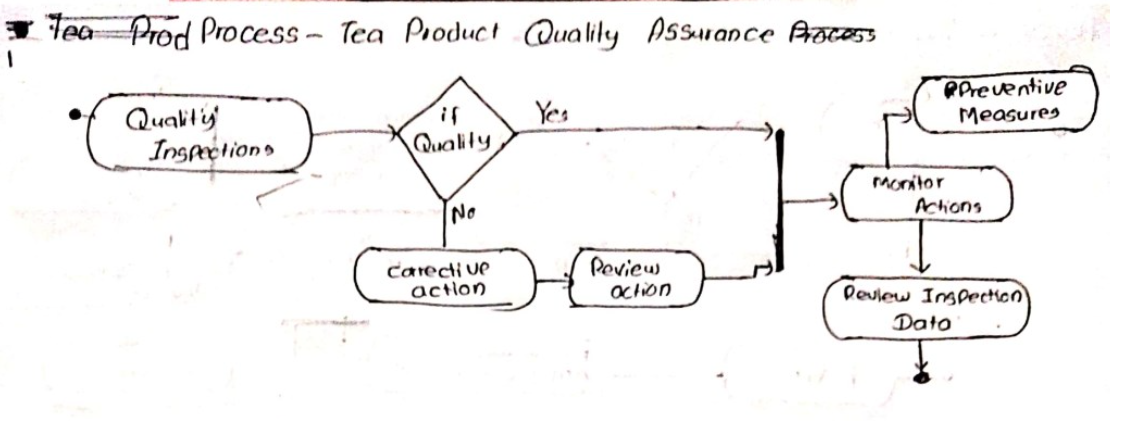 Tea Prod Process - Tea Product Quality Assurance Process
1
Quality
Inspections
if
Quality
Yes
No
Carective
action
Review
action
Preventive
Measures
Monitor
Actions
Review Inspection
Data